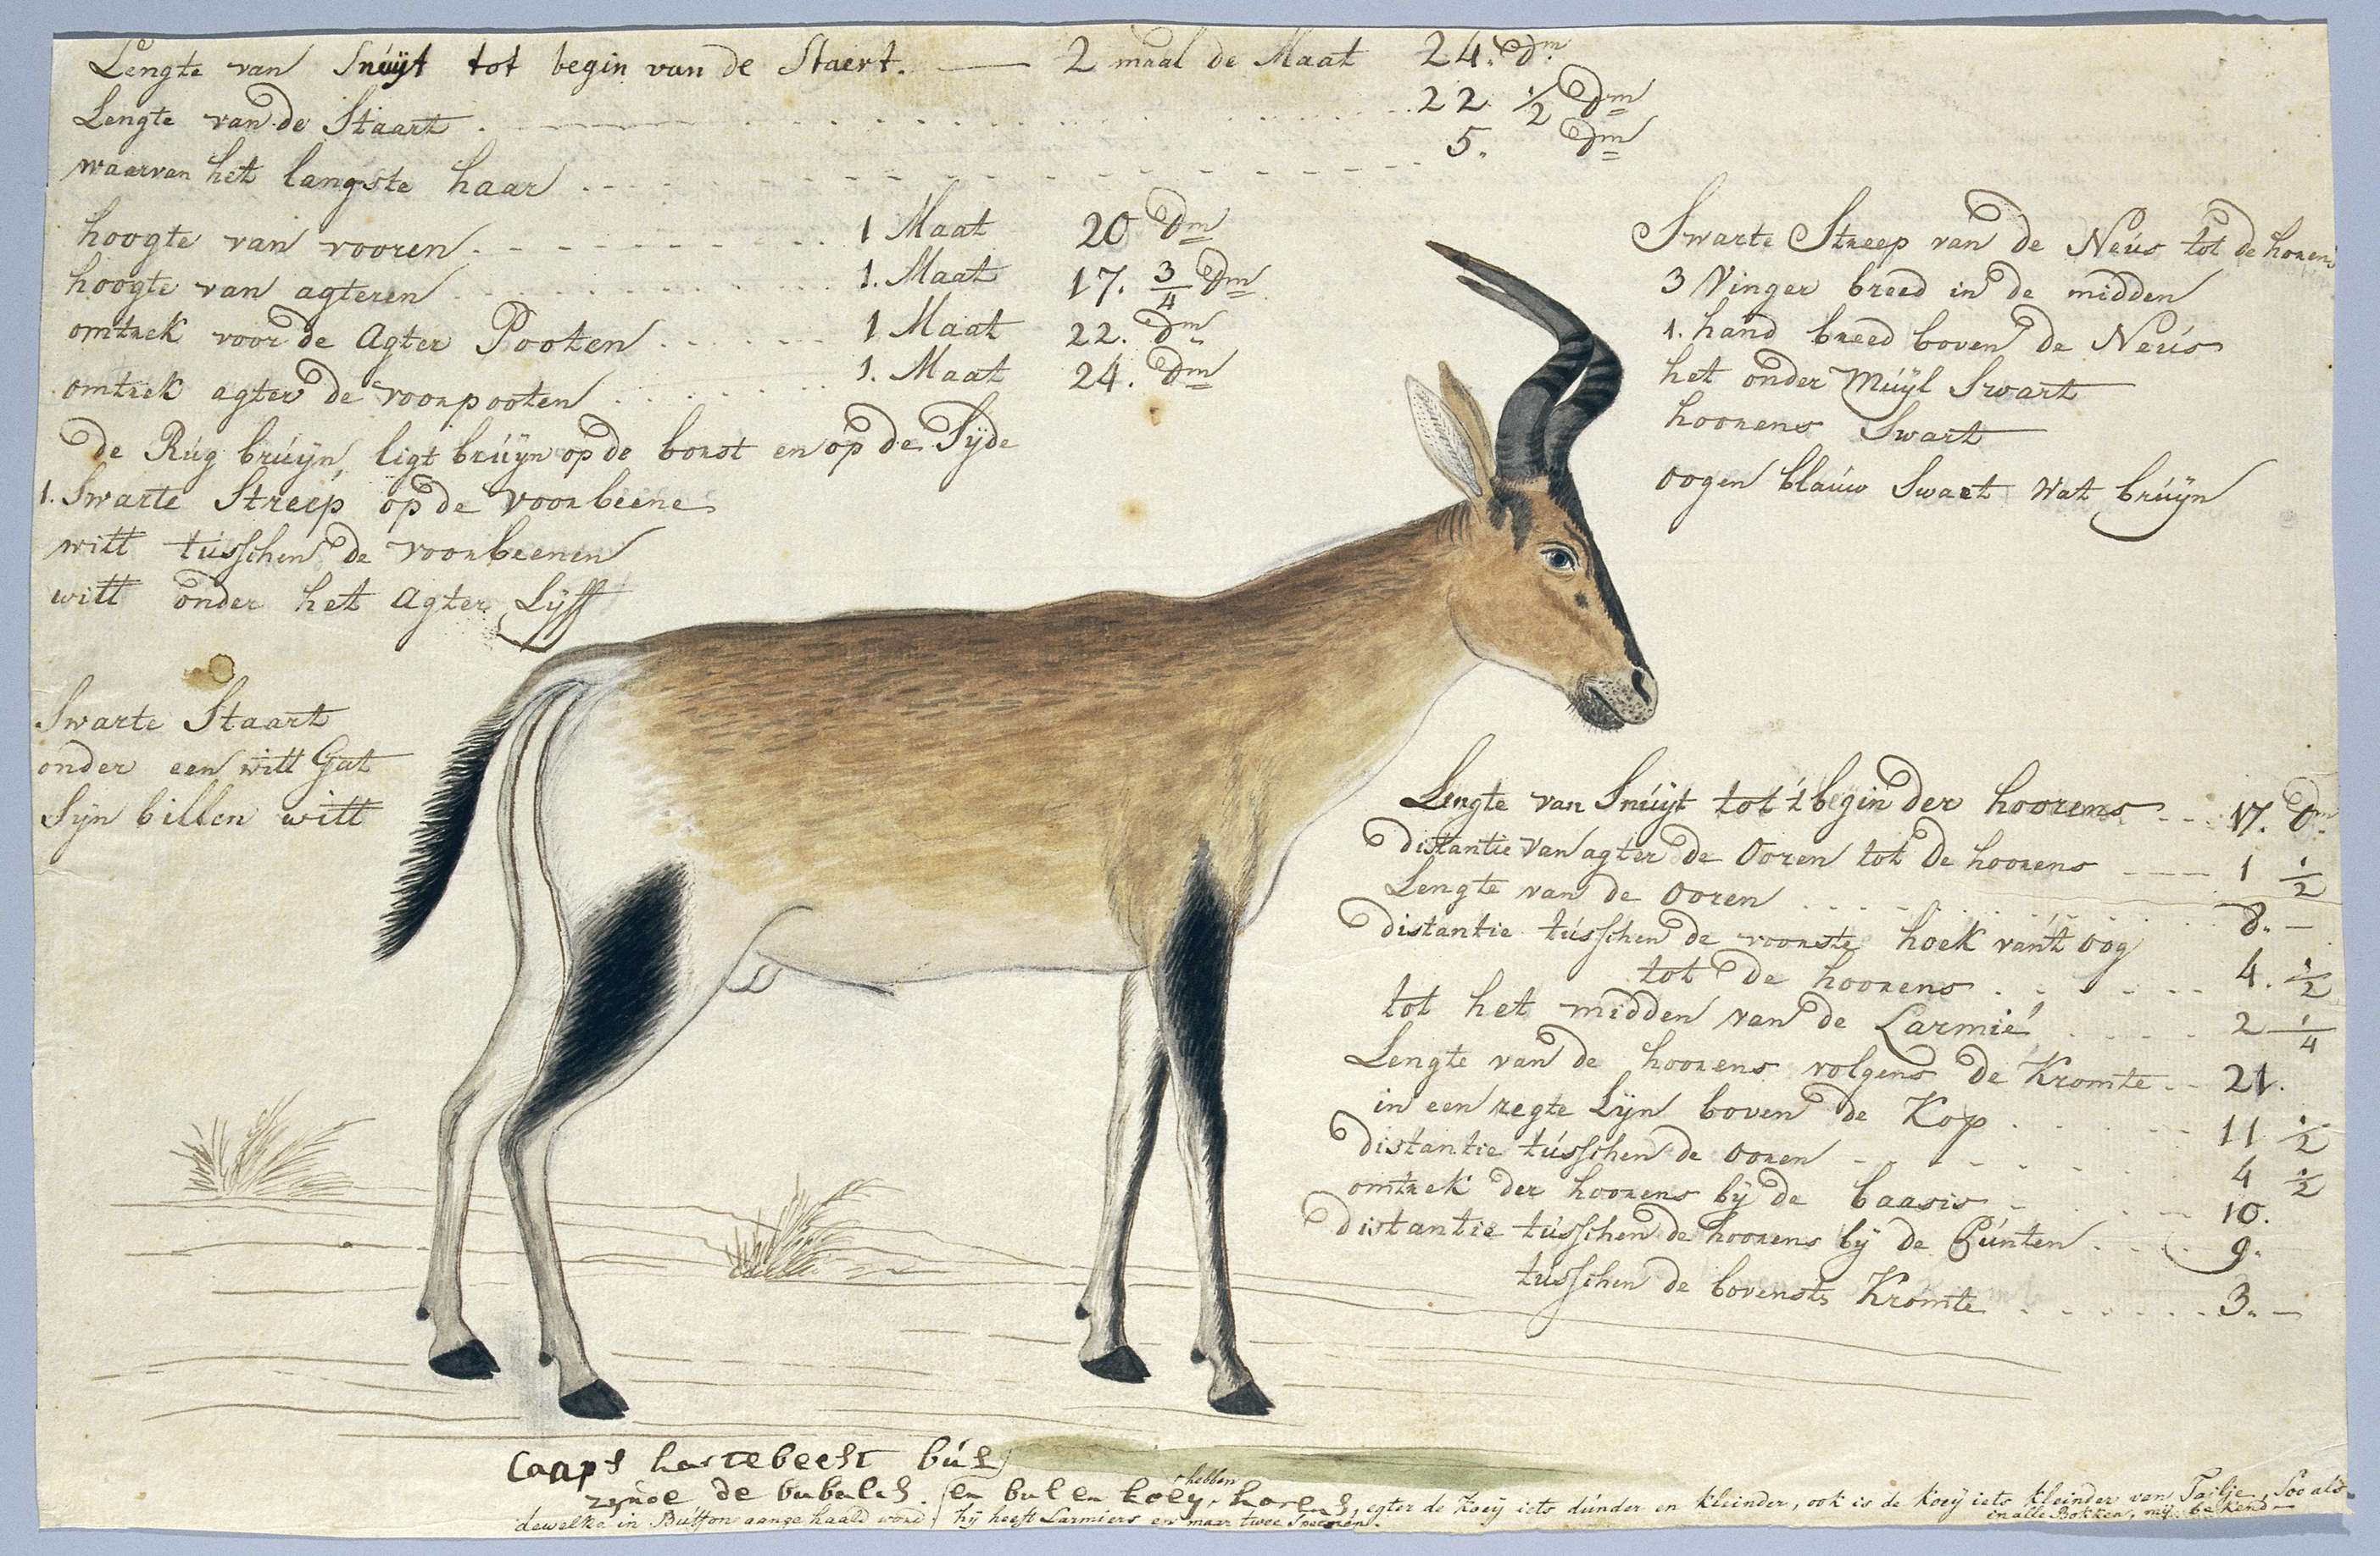 Lengte van Snuÿt tot begin van de Staert. — 2 maal de Maat 24. Dm
Lengte van de Staart . . . . 22 1/2 Dm
waarvan het langste haar . . . . 5. Dm
hoogte van vooren . . . . 1 Maat 20 Dm
hoogte van agteren . . . . 1. Maat 17. 3/4 Dm
omtrek voor de Agter Pooten . . . . 1 Maat 22. Dm
omtrek agter de voorpooten . . . . 1. Maat 24. Dm
de Rúg brúÿn, ligt brúÿn op de borst en op de Sÿde
1. Swarte Streep op de voorbeene
witt tússchen de voorbeenen
witt onder het Agter Lÿff
Swarte Staart
onder een witt Gat
Sÿn billen witt
Swarte Streep van de Neús tot de horens
3 Vinger breed in de midden
1. hand breed boven de Neús
het onder Múÿl Swart
hoorens Swart
oogen blaúw Swaet Wat brúÿn
Lengte van Snúÿt tot 't begin der hoorens - - 17. Dm
distantie van agter de Ooren tot de hoorens --- 1 1/2
Lengte van de Ooren . . . . 8. -
distantie tússchen de voorste hoek van't oog
tot de hoorens . . . . 4. 1/2
tot het midden van de Larmié . . . . 2 1/4
Lengte van de hoorens volgens de Kromte - - 21.
in een regte Lÿn boven de Kop . . . . 11 1/2
distantie tússchen de ooren - - - - 4 1/2
omtrek der hoorens bÿ de baasis - . . . 10.
distantie tússchen de hoorens bÿ de Púnten . . . 9.
tusschen de bovenste Kromte . . . . 3. -
Caaps hartebeest búl
zynde de bubalus. en bul en koey hebben horens, egter de Koeÿ iets dúnder en kleinder, ook is de koeÿ iets kleinder van Tailje, Soo als
dewelke in Búffon aangehaald word. hÿ heeft Larmiers en maar twee Speenen. in alle Bokken, mÿ bekend —